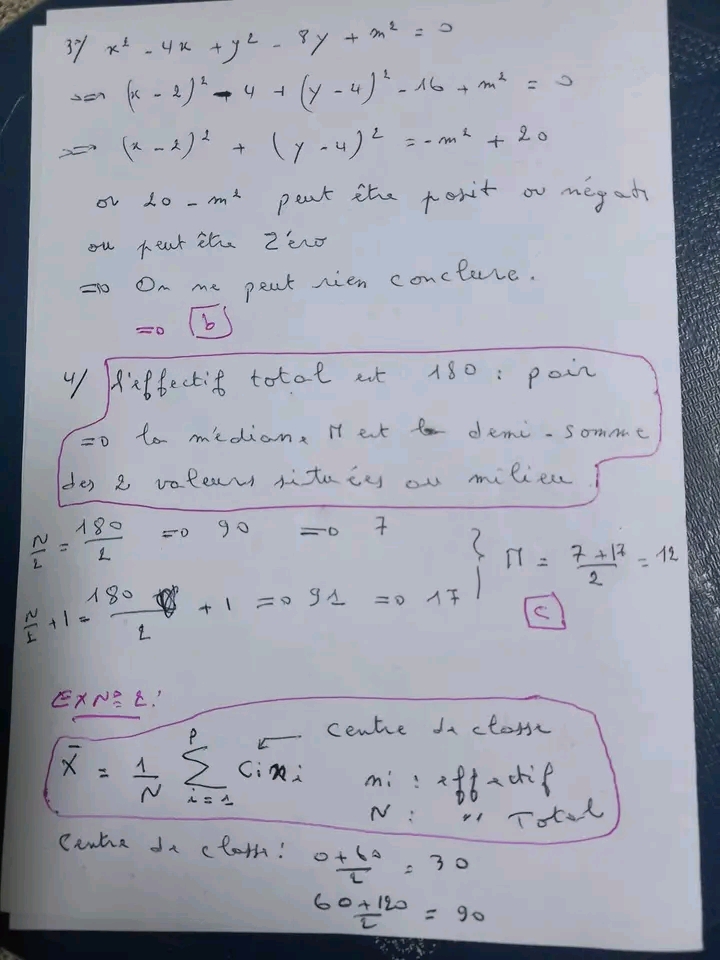 3°/ x² - 4x + y² - 8y + m² = 0
⟹ (x - 2)² - 4 + (y - 4)² - 16 + m² = 0
⟹ (x - 2)² + (y - 4)² = - m² + 20
or 20 - m² peut être posit ou négati
ou peut être Zéro
⟹ On ne peut rien conclure.
⟹ b
4/ l'effectif total est 180 : pair
⟹ la médiane M est la demi-somme
des 2 valeurs situées au milieu
N/2 = 180/2 ⟹ 90 ⟹ 7
M = (7 + 17)/2 = 12
N/2 + 1 = 180/2 + 1 ⟹ 91 ⟹ 17
c
EX N° 2 :
X̄ = 1/N Σ_{i=1}^{p} Ci ni ← centre de classe
ni : effectif
N : " Total
Centre de classe : (0 + 60)/2 = 30
(60 + 120)/2 = 90